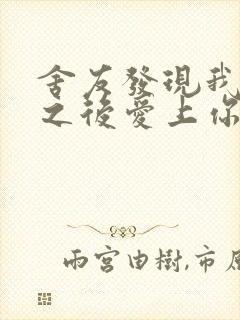 舍友發現我
之後愛上你
雨宮由樹,市原